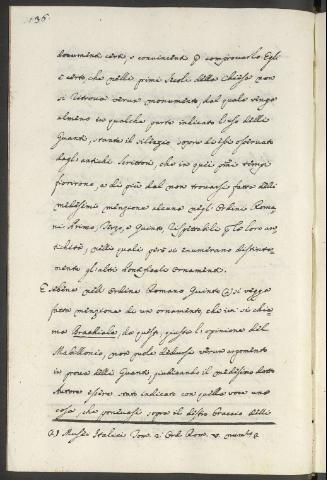 136
documenti certi, e convincenti p comprovarlo. Egli
è certo, che nelli primi Secoli della Chiesa non
si ritrova verun monumento, dal quale venga
almeno in qualche parte indicato l'uso delle
Guanti, stante il silenzio sopra di essi osservato
dagli antichi Scrittori, che in quei pmi tempi
fiorirono, e di più dal non trovarsi fatta delli
medesimi menzione alcuna negli Ordini Roma-
ni Primo, Terzo, e Quinto, rispettabili p la loro an-
tichità, nelli quali però si enumerano distinta-
mente gli altri Pontificali ornamenti.
E sebbene nell'Ordine Romano Quinto (a) si vegga
fatta menzione di un ornamento, che ivi si chia-
ma Brachiale, da questo, giusta l'opinione del
Mabillonio, non puole dedursi verun argomento
in prova delli Guanti, giudicando il medesimo dotto
Autore essere stato indicato con quella voce una
cosa, che ponevasi sopra il destro Braccio delli
(a) Museo Italici Tom. 2. Ord. Rom. V. num.